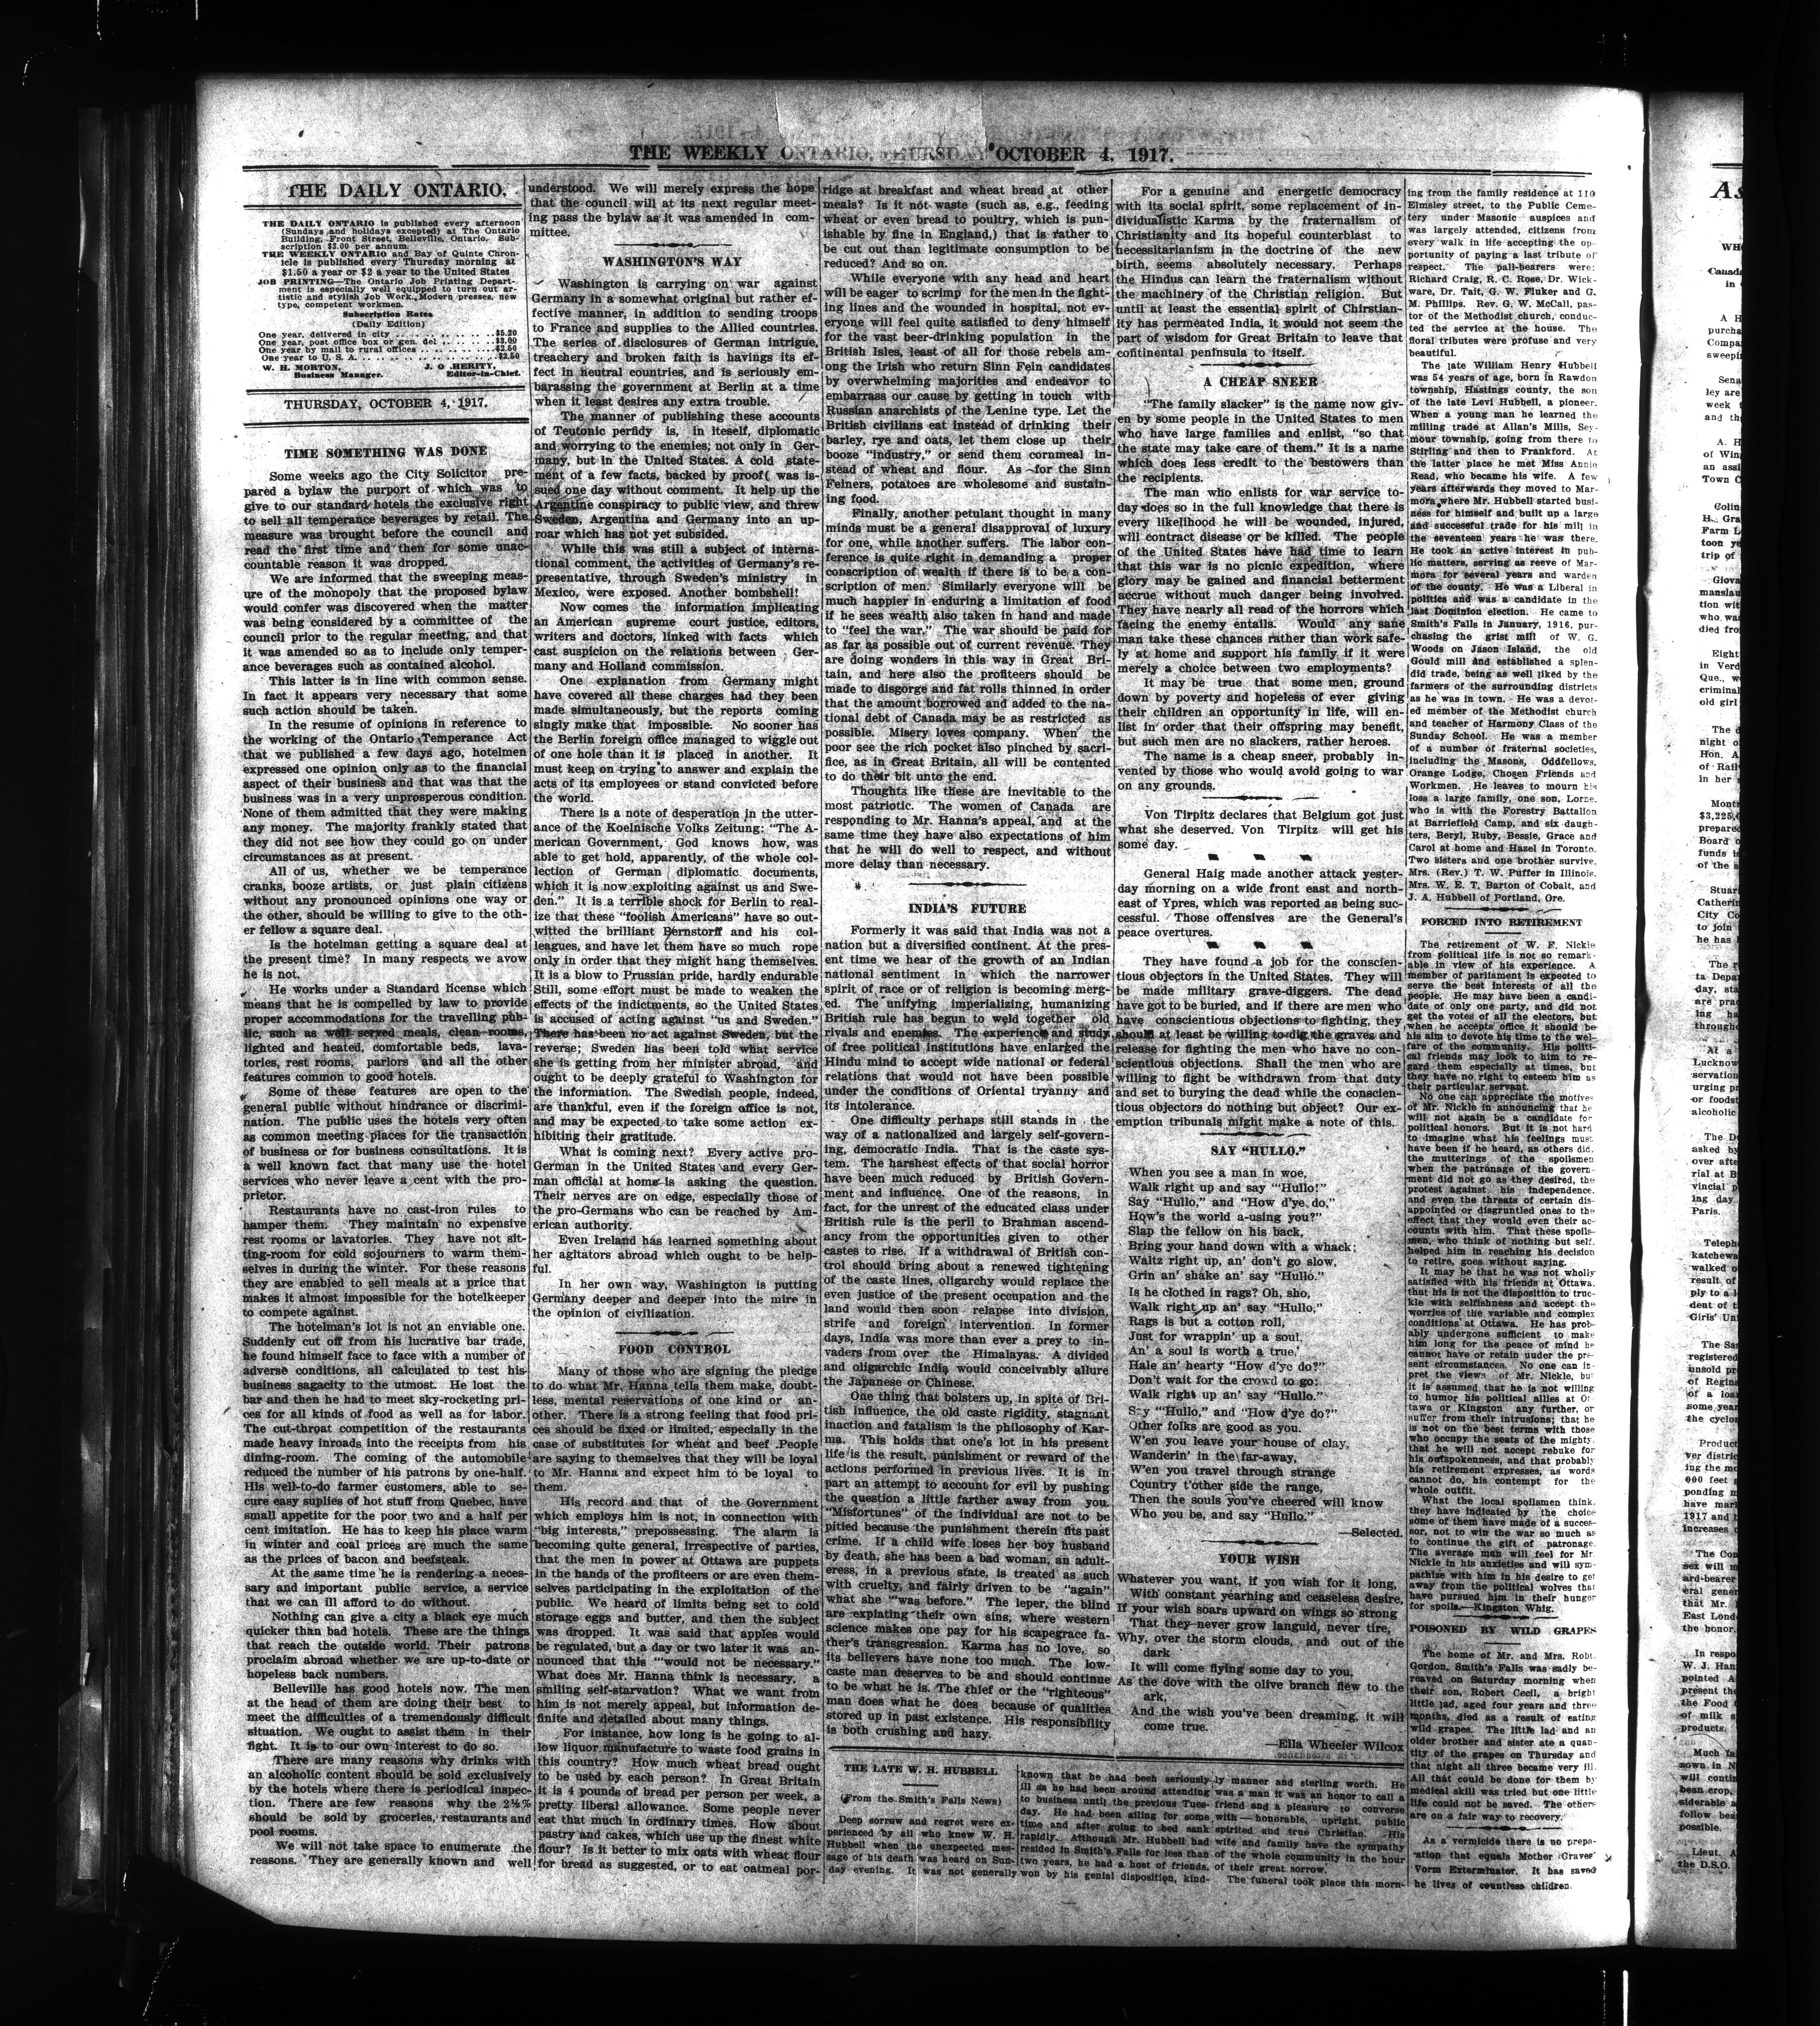 THE WEEKLY ONTARIO, THURSDAY OCTOBER 4, 1917.
THE DAILY ONTARIO.
THE DAILY ONTARIO is published every afternoon
(Sundays and holidays excepted) at The Ontario
Building, Front Street, Belleville, Ontario. Sub-
scription $3.00 per annum.
THE WEEKLY ONTARIO and Bay of Quinte Chron-
icle is published every Thursday morning at
$1.50 a year or $2 a year to the United States
JOB PRINTING—The Ontario Job Printing Depart-
ment is especially well equipped to turn out ar-
tistic and stylish Job Work. Modern presses, new
type, competent workmen.
Subscription Rates
(Daily Edition)
One year, delivered in city . . . $5.20
One year, post office box or gen. del . . $3.00
One year by mail to rural offices . . . $2.50
One year to U. S. A. . . . $2.50
W. H. MORTON, J. O. HERITY,
Business Manager. Editor-in-Chief.
THURSDAY, OCTOBER 4, 1917.
TIME SOMETHING WAS DONE
Some weeks ago the City Solicitor pre-
pared a bylaw the purport of which was to
give to our standard hotels the exclusive right
to sell all temperance beverages by retail. The
measure was brought before the council and
read the first time and then for some unac-
countable reason it was dropped.
We are informed that the sweeping meas-
ure of the monopoly that the proposed bylaw
would confer was discovered when the matter
was being considered by a committee of the
council prior to the regular meeting, and that
it was amended so as to include only temper-
ance beverages such as contained alcohol.
This latter is in line with common sense.
In fact it appears very necessary that some
such action should be taken.
In the resume of opinions in reference to
the working of the Ontario Temperance Act
that we published a few days ago, hotelmen
expressed one opinion only as to the financial
aspect of their business and that was that the
business was in a very unprosperous condition.
None of them admitted that they were making
any money. The majority frankly stated that
they did not see how they could go on under
circumstances as at present.
All of us, whether we be temperance
cranks, booze artists, or just plain citizens
without any pronounced opinions one way or
the other, should be willing to give to the oth-
er fellow a square deal.
Is the hotelman getting a square deal at
the present time? In many respects we avow
he is not.
He works under a Standard license which
means that he is compelled by law to provide
proper accommodations for the travelling pub-
lic, such as well served meals, clean rooms,
lighted and heated, comfortable beds, lava-
tories, rest rooms, parlors and all the other
features common to good hotels.
Some of these features are open to the
general public without hindrance or discrimi-
nation. The public uses the hotels very often
as common meeting places for the transaction
of business or for business consultations. It is
a well known fact that many use the hotel
services who never leave a cent with the pro-
prietor.
Restaurants have no cast-iron rules to
hamper them. They maintain no expensive
rest rooms or lavatories. They have not sit-
ting-room for cold sojourners to warm them-
selves in during the winter. For these reasons
they are enabled to sell meals at a price that
makes it almost impossible for the hotelkeeper
to compete against.
The hotelman's lot is not an enviable one.
Suddenly cut off from his lucrative bar trade,
he found himself face to face with a number of
adverse conditions, all calculated to test his
business sagacity to the utmost. He lost the
bar and then he had to meet sky-rocketing pri-
ces for all kinds of food as well as for labor.
The cut-throat competition of the restaurants
made heavy inroads into the receipts from his
dining-room. The coming of the automobile
reduced the number of his patrons by one-half.
His well-to-do farmer customers, able to se-
cure easy suplies of hot stuff from Quebec, have
small appetite for the poor two and a half per
cent imitation. He has to keep his place warm
in winter and coal prices are much the same
as the prices of bacon and beefsteak.
At the same time he is rendering a neces-
sary and important public service, a service
that we can ill afford to do without.
Nothing can give a city a black eye much
quicker than bad hotels. These are the things
that reach the outside world. Their patrons
proclaim abroad whether we are up-to-date or
hopeless back numbers.
Belleville has good hotels now. The men
at the head of them are doing their best to
meet the difficulties of a tremendously difficult
situation. We ought to assist them in their
fight. It is to our own interest to do so.
There are many reasons why drinks with
an alcoholic content should be sold exclusively
by the hotels where there is periodical inspec-
tion. There are few reasons why the 2½%
should be sold by groceries, restaurants and
pool rooms.
We will not take space to enumerate the
reasons. They are generally known and well
understood. We will merely express the hope
that the council will at its next regular meet-
ing pass the bylaw as it was amended in com-
mittee.
WASHINGTON'S WAY
Washington is carrying on war against
Germany in a somewhat original but rather ef-
fective manner, in addition to sending troops
to France and supplies to the Allied countries.
The series of disclosures of German intrigue,
treachery and broken faith is havings its ef-
fect in neutral countries, and is seriously em-
barassing the government at Berlin at a time
when it least desires any extra trouble.
The manner of publishing these accounts
of Teutonic perfidy is, in iteself, diplomatic
and worrying to the enemies; not only in Ger-
many, but in the United States. A cold state-
ment of a few facts, backed by proof( was is-
sued one day without comment. It help up the
Argentine conspiracy to public view, and threw
Sweden, Argentina and Germany into an up-
roar which has not yet subsided.
While this was still a subject of interna-
tional comment, the activities of Germany's re-
presentative, through Sweden's ministry in
Mexico, were exposed. Another bombshell!
Now comes the information implicating
an American supreme court justice, editors,
writers and doctors, linked with facts which
cast suspicion on the relations between Ger-
many and Holland commission.
One explanation from Germany might
have covered all these charges had they been
made simultaneously, but the reports coming
singly make that impossible. No sooner has
the Berlin foreign office managed to wiggle out
of one hole than it is placed in another. It
must keep on trying to answer and explain the
acts of its employees or stand convicted before
the world.
There is a note of desperation in the utter-
ance of the Koelnische Volks Zeitung: "The A-
merican Government, God knows how, was
able to get hold, apparently, of the whole col-
lection of German diplomatic documents,
which it is now exploiting against us and Swe-
den." It is a terrible shock for Berlin to real-
ize that these "foolish Americans" have so out-
witted the brilliant Bernstorff and his col-
leagues, and have let them have so much rope
only in order that they might hang themselves.
It is a blow to Prussian pride, hardly endurable
Still, some effort must be made to weaken the
effects of the indictments, so the United States
is accused of acting against "us and Sweden."
There has been no act against Sweden, but the
reverse; Sweden has been told what service
she is getting from her minister abroad, and
ought to be deeply grateful to Washington for
the information. The Swedish people, indeed,
are thankful, even if the foreign office is not,
and may be expected to take some action ex-
hibiting their gratitude.
What is coming next? Every active pro-
German in the United States and every Ger-
man official at home is asking the question.
Their nerves are on edge, especially those of
the pro-Germans who can be reached by Am-
erican authority.
Even Ireland has learned something about
her agitators abroad which ought to be help-
ful.
In her own way, Washington is putting
Germany deeper and deeper into the mire in
the opinion of civilization.
FOOD CONTROL
Many of those who are signing the pledge
to do what Mr. Hanna tells them make, doubt-
less, mental reservations of one kind or an-
other. There is a strong feeling that food pri-
ces should be fixed or limited, especially in the
case of substitutes for wheat and beef .People
are saying to themselves that they will be loyal
to Mr. Hanna and expect him to be loyal to
them.
His record and that of the Government
which employs him is not, in connection with
"big interests," prepossessing. The alarm is
becoming quite general, irrespective of parties,
that the men in power at Ottawa are puppets
in the hands of the profiteers or are even them-
selves participating in the exploitation of the
public. We heard of limits being set to cold
storage eggs and butter, and then the subject
was dropped. It was said that apples would
be regulated, but a day or two later it was an-
nounced that this "'would not be necessary."
What does Mr. Hanna think is necessary, a
smiling self-starvation? What we want from
him is not merely appeal, but information de-
finite and detailed about many things.
For instance, how long is he going to al-
low liquor manufacture to waste food grains in
this country? How much wheat bread ought
to be used by each person? In Great Britain
it is 4 pounds of bread per person per week, a
pretty liberal allowance. Some people never
eat that much in ordinary times. How about
pastry and cakes, which use up the finest white
flour? Is it better to mix oats with wheat flour
for bread as suggested, or to eat oatmeal por-
ridge at breakfast and wheat bread at other
meals? Is it not waste (such as, e.g., feeding
wheat or even bread to poultry, which is pun-
ishable by fine in England,) that is rather to
be cut out than legitimate consumption to be
reduced? And so on.
While everyone with any head and heart
will be eager to scrimp for the men in the fight-
ing lines and the wounded in hospital, not ev-
eryone will feel quite satisfied to deny himself
for the vast beer-drinking population in the
British Isles, least of all for those rebels am-
ong the Irish who return Sinn Fein candidates
by overwhelming majorities and endeavor to
embarrass our cause by getting in touch with
Russian anarchists of the Lenine type. Let the
British civilians eat instead of drinking their
barley, rye and oats, let them close up their
booze "industry," or send them cornmeal in-
stead of wheat and flour. As for the Sinn
Feiners, potatoes are wholesome and sustain-
ing food.
Finally, another petulant thought in many
minds must be a general disapproval of luxury
for one, while another suffers. The labor con-
ference is quite right in demanding a proper
conscription of wealth if there is to be a con-
scription of men. Similarly everyone will be
much happier in enduring a limitation of food
if he sees wealth also taken in hand and made
to "feel the war." The war should be paid for
as far as possible out of current revenue. They
are doing wonders in this way in Great Bri-
tain, and here also the profiteers should be
made to disgorge and fat rolls thinned in order
that the amount borrowed and added to the na-
tional debt of Canada may be as restricted as
possible. Misery loves company. When the
poor see the rich pocket also pinched by sacri-
fice, as in Great Britain, all will be contented
to do their bit unto the end.
Thoughts like these are inevitable to the
most patriotic. The women of Canada are
responding to Mr. Hanna's appeal, and at the
same time they have also expectations of him
that he will do well to respect, and without
more delay than necessary.
INDIA'S FUTURE
Formerly it was said that India was not a
nation but a diversified continent. At the pres-
ent time we hear of the growth of an Indian
national sentiment in which the narrower
spirit of race or of religion is becoming merg-
ed. The unifying imperializing, humanizing
British rule has begun to weld together old
rivals and enemies. The experience and study
of free political institutions have enlarged the
Hindu mind to accept wide national or federal
relations that would not have been possible
under the conditions of Oriental tryanny and
its intolerance.
One difficulty perhaps still stands in the
way of a nationalized and largely self-govern-
ing, democratic India. That is the caste sys-
tem. The harshest effects of that social horror
have been much reduced by British Govern-
ment and influence. One of the reasons, in
fact, for the unrest of the educated class under
British rule is the peril to Brahman ascend-
ancy from the opportunities given to other
castes to rise. If a withdrawal of British con-
trol should bring about a renewed tightening
of the caste lines, oligarchy would replace the
even justice of the present occupation and the
land would then soon relapse into division,
strife and foreign intervention. In former
days, India was more than ever a prey to in-
vaders from over the Himalayas. A divided
and oligarchic India would conceivably allure
the Japanese or Chinese.
One thing that bolsters up, in spite of Bri-
tish influence, the old caste rigidity, stagnant
inaction and fatalism is the philosophy of Kar-
ma. This holds that one's lot in his present
life is the result, punishment or reward of the
actions performed in previous lives. It is in
part an attempt to account for evil by pushing
the question a little farther away from you.
"Misfortunes" of the individual are not to be
pitied because the punishment therein fits past
crime. If a child wife loses her boy husband
by death, she has been a bad woman, an adult-
eress, in a previous state, is treated as such
with cruelty, and fairly driven to be "again"
what she "'was before." The leper, the blind
are expiating their own sins, where western
science makes one pay for his scapegrace fa-
ther's transgression. Karma has no love, so
its believers have none too much. The low-
caste man deserves to be and should continue
to be what he is. The thief or the "righteous"
man does what he does because of qualities
stored up in past existence. His responsibility
is both crushing and hazy.
For a genuine and energetic democracy
with its social spirit, some replacement of in-
dividualistic Karma by the fraternalism of
Christianity and its hopeful counterblast to
necessitarianism in the doctrine of the new
birth, seems absolutely necessary. Perhaps
the Hindus can learn the fraternalism without
the machinery of the Christian religion. But
until at least the essential spirit of Chirstian-
ity has permeated India, it would not seem the
part of wisdom for Great Britain to leave that
continental peninsula to itself.
A CHEAP SNEER
"The family slacker" is the name now giv-
en by some people in the United States to men
who have large families and enlist, "so that
the state may take care of them." It is a name
which does less credit to the bestowers than
the recipients.
The man who enlists for war service to-
day does so in the full knowledge that there is
every likelihood he will be wounded, injured,
will contract disease or be killed. The people
of the United States have had time to learn
that this war is no picnic expedition, where
glory may be gained and financial betterment
accrue without much danger being involved.
They have nearly all read of the horrors which
facing the enemy entails. Would any sane
man take these chances rather than work safe-
ly at home and support his family if it were
merely a choice between two employments?
It may be true that some men, ground
down by poverty and hopeless of ever giving
their children an opportunity in life, will en-
list in order that their offspring may benefit,
but such men are no slackers, rather heroes.
The name is a cheap sneer, probably in-
vented by those who would avoid going to war
on any grounds.
Von Tirpitz declares that Belgium got just
what she deserved. Von Tirpitz will get his
some day.
General Haig made another attack yester-
day morning on a wide front east and north-
east of Ypres, which was reported as being suc-
cessful. Those offensives are the General's
peace overtures.
They have found a job for the conscien-
tious objectors in the United States. They will
be made military grave-diggers. The dead
have got to be buried, and if there are men who
have conscientious objections to fighting, they
should at least be willing to dig the graves and
release for fighting the men who have no con-
scientious objections. Shall the men who are
willing to fight be withdrawn from that duty
and set to burying the dead while the conscien-
tious objectors do nothing but object? Our ex-
emption tribunals might make a note of this.
SAY "HULLO."
When you see a man in woe,
Walk right up and say "'Hullo!"
Say "Hullo," and "How d'ye do,"
How's the world a-using you?"
Slap the fellow on his back,
Bring your hand down with a whack;
Waltz right up, an' don't go slow,
Grin an' shake an' say "Hullo."
Is he clothed in rags? Oh, sho,
Walk right up an' say "Hullo."
Rags is but a cotton roll,
Just for wrappin' up a soul,
An' a soul is worth a true,
Hale an' hearty "How d'ye do?"
Don't wait for the crowd to go;
Walk right up an' say "Hullo."
Say "'Hullo," and "How d'ye do?"
Other folks are good as you.
W'en you leave your house of clay,
Wanderin' in the far-away,
W'en you travel through strange
Country t'other side the range,
Then the souls you've cheered will know
Who you be, and say "Hullo."
—Selected.
YOUR WISH
Whatever you want, if you wish for it long,
With constant yearning and ceaseless desire,
If your wish soars upward on wings so strong
That they never grow languid, never tire,
Why, over the storm clouds, and out of the
dark
It will come flying some day to you,
As the dove with the olive branch flew to the
ark,
And the wish you've been dreaming, it will
come true.
—Ella Wheeler Wilcox
THE LATE W. H. HUBBELL
(From the Smith's Falls News)
Deep sorrow and regret were ex-
perienced by all who knew W. H.
Hubbell when the unexpected mes-
sage of his death was heard on Sun-
day evening. It was not generally
known that he had been seriously
ill as he had been around attending
to business until the previous Tues-
day. He had been ailing for some
time and after going to bed sank
rapidly. Although Mr. Hubbell had
resided in Smith's Falls for less than
two years, he had a host of friends,
won by his genial disposition, kind-
ly manner and sterling worth. He
was a man it was an honor to call a
friend and a pleasure to converse
with — honorable, upright, public
spirited and true Christian. His
wife and family have the sympathy
of the whole community in the hour
of their great sorrow.
The funeral took place this morn-
ing from the family residence at 110
Elmsley street, to the Public Ceme-
tery under Masonic auspices and
was largely attended, citizens from
every walk in life accepting the op-
portunity of paying a last tribute of
respect. The pall-bearers were:
Richard Craig, R. C. Rose, Dr. Wick-
ware, Dr. Tait, G. W. Fluker and G.
M. Phillips. Rev. G. W. McCall, pas-
tor of the Methodist church, conduc-
ted the service at the house. The
floral tributes were profuse and very
beautiful.
The late William Henry Hubbell
was 54 years of age, born in Rawdon
township, Hastings county, the son
of the late Levi Hubbell, a pioneer.
When a young man he learned the
milling trade at Allan's Mills, Sey-
mour township, going from there to
Stirling and then to Frankford. At
the latter place he met Miss Annie
Read, who became his wife. A few
years afterwards they moved to Mar-
mora where Mr. Hubbell started busi-
ness for himself and built up a large
and successful trade for his mill in
the seventeen years he was there.
He took an active interest in pub-
lic matters, serving as reeve of Mar-
mora for several years and warden
of the county. He was a Liberal in
politics and was a candidate in the
last Dominion election. He came to
Smith's Falls in January, 1916, pur-
chasing the grist mill of W. G.
Woods on Jason Island, the old
Gould mill and established a splen-
did trade, being as well liked by the
farmers of the surrounding districts
as he was in town. He was a devot-
ed member of the Methodist church
and teacher of Harmony Class of the
Sunday School. He was a member
of a number of fraternal societies,
including the Masons, Oddfellows,
Orange Lodge, Chosen Friends and
Workmen. He leaves to mourn his
loss a large family, one son, Lorne,
who is with the Forestry Battalion
at Barriefield Camp, and six daugh-
ters, Beryl, Ruby, Bessie, Grace and
Carol at home and Hazel in Toronto.
Two sisters and one brother survive,
Mrs. (Rev.) T. W. Puffer in Illinois,
Mrs. W. E. T. Barton of Cobalt, and
J. A. Hubbell of Portland, Ore.
FORCED INTO RETIREMENT
The retirement of W. F. Nickle
from political life is not so remark-
able in view of his experience. A
member of parliament is expected to
serve the best interests of all the
people. He may have been a candi-
date of only one party, and did not
get the votes of all the electors, but
when he accepts office it should be
his aim to devote his time to the wel-
fare of the community. His politi-
cal friends may look to him to re-
gard them especially at times, but
they have no right to esteem him as
their particular servant.
No one can appreciate the motives
of Mr. Nickle in announcing that he
will not again be a candidate for
political honors. But it is not hard
to imagine what his feelings must
have been if he heard, as others did,
the mutterings of the spoilsmen
when the patronage of the govern-
ment did not go as they desired, the
protest against his independence,
and even the threats of certain dis-
appointed or disgruntled ones to the
effect that they would even their ac-
counts with him. That these spoils-
men, who think of nothing but self,
helped him in reaching his decision
to retire, goes without saying.
It may be that he was not wholly
satisfied with his friends at Ottawa,
that his is not the disposition to truc-
kle with selfishness and accept the
worries of the variable and complex
conditions at Ottawa. He has prob-
ably undergone sufficient to make
him long for the peace of mind he
cannot have or retain under the pre-
sent circumstances. No one can in-
pret the views of Mr. Nickle, but
it is assumed that he is not willing
to humor his political allies at Ot-
tawa or Kingston any further, or
suffer from their intrusions; that he
is not on the best terms with those
who occupy the seats of the mighty,
that he will not accept rebuke for
his outspokenness, and that probably
his retirement expresses, as words
cannot do, his contempt for the
whole outfit.
What the local spoilsmen think,
they have indicated by the choice
some of them have made of a succes-
sor, not to win the war so much as
to continue the gift of patronage.
The average man will feel for Mr.
Nickle in his anxieties and will sym-
pathize with him in his desire to get
away from the political wolves that
have pursued him in their hunger
for spoils.—Kingston Whig.
POISONED BY WILD GRAPES
The home of Mr. and Mrs. Robt.
Gordon, Smith's Falls was sadly be-
reaved on Saturday morning when
their son, Robert Cecil, a bright
little lad, aged four years and three
months, died as a result of eating
wild grapes. The little lad and an
older brother and sister ate a quan-
tity of the grapes on Thursday and
that night all three became very ill.
All that could be done for them by
medical skill was tried but one little
life could not be saved. The others
are on a fair way to recovery.
As a vermicide there is no prepa-
ration that equals Mother Graves'
Vorm Exterminator. It has saved
he lives of countless children.